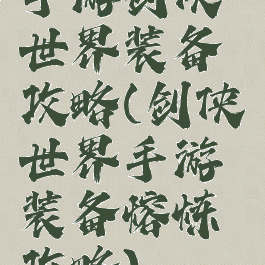 手游剑侠
世界装备
攻略(剑侠
世界手游
装备熔炼
攻略)